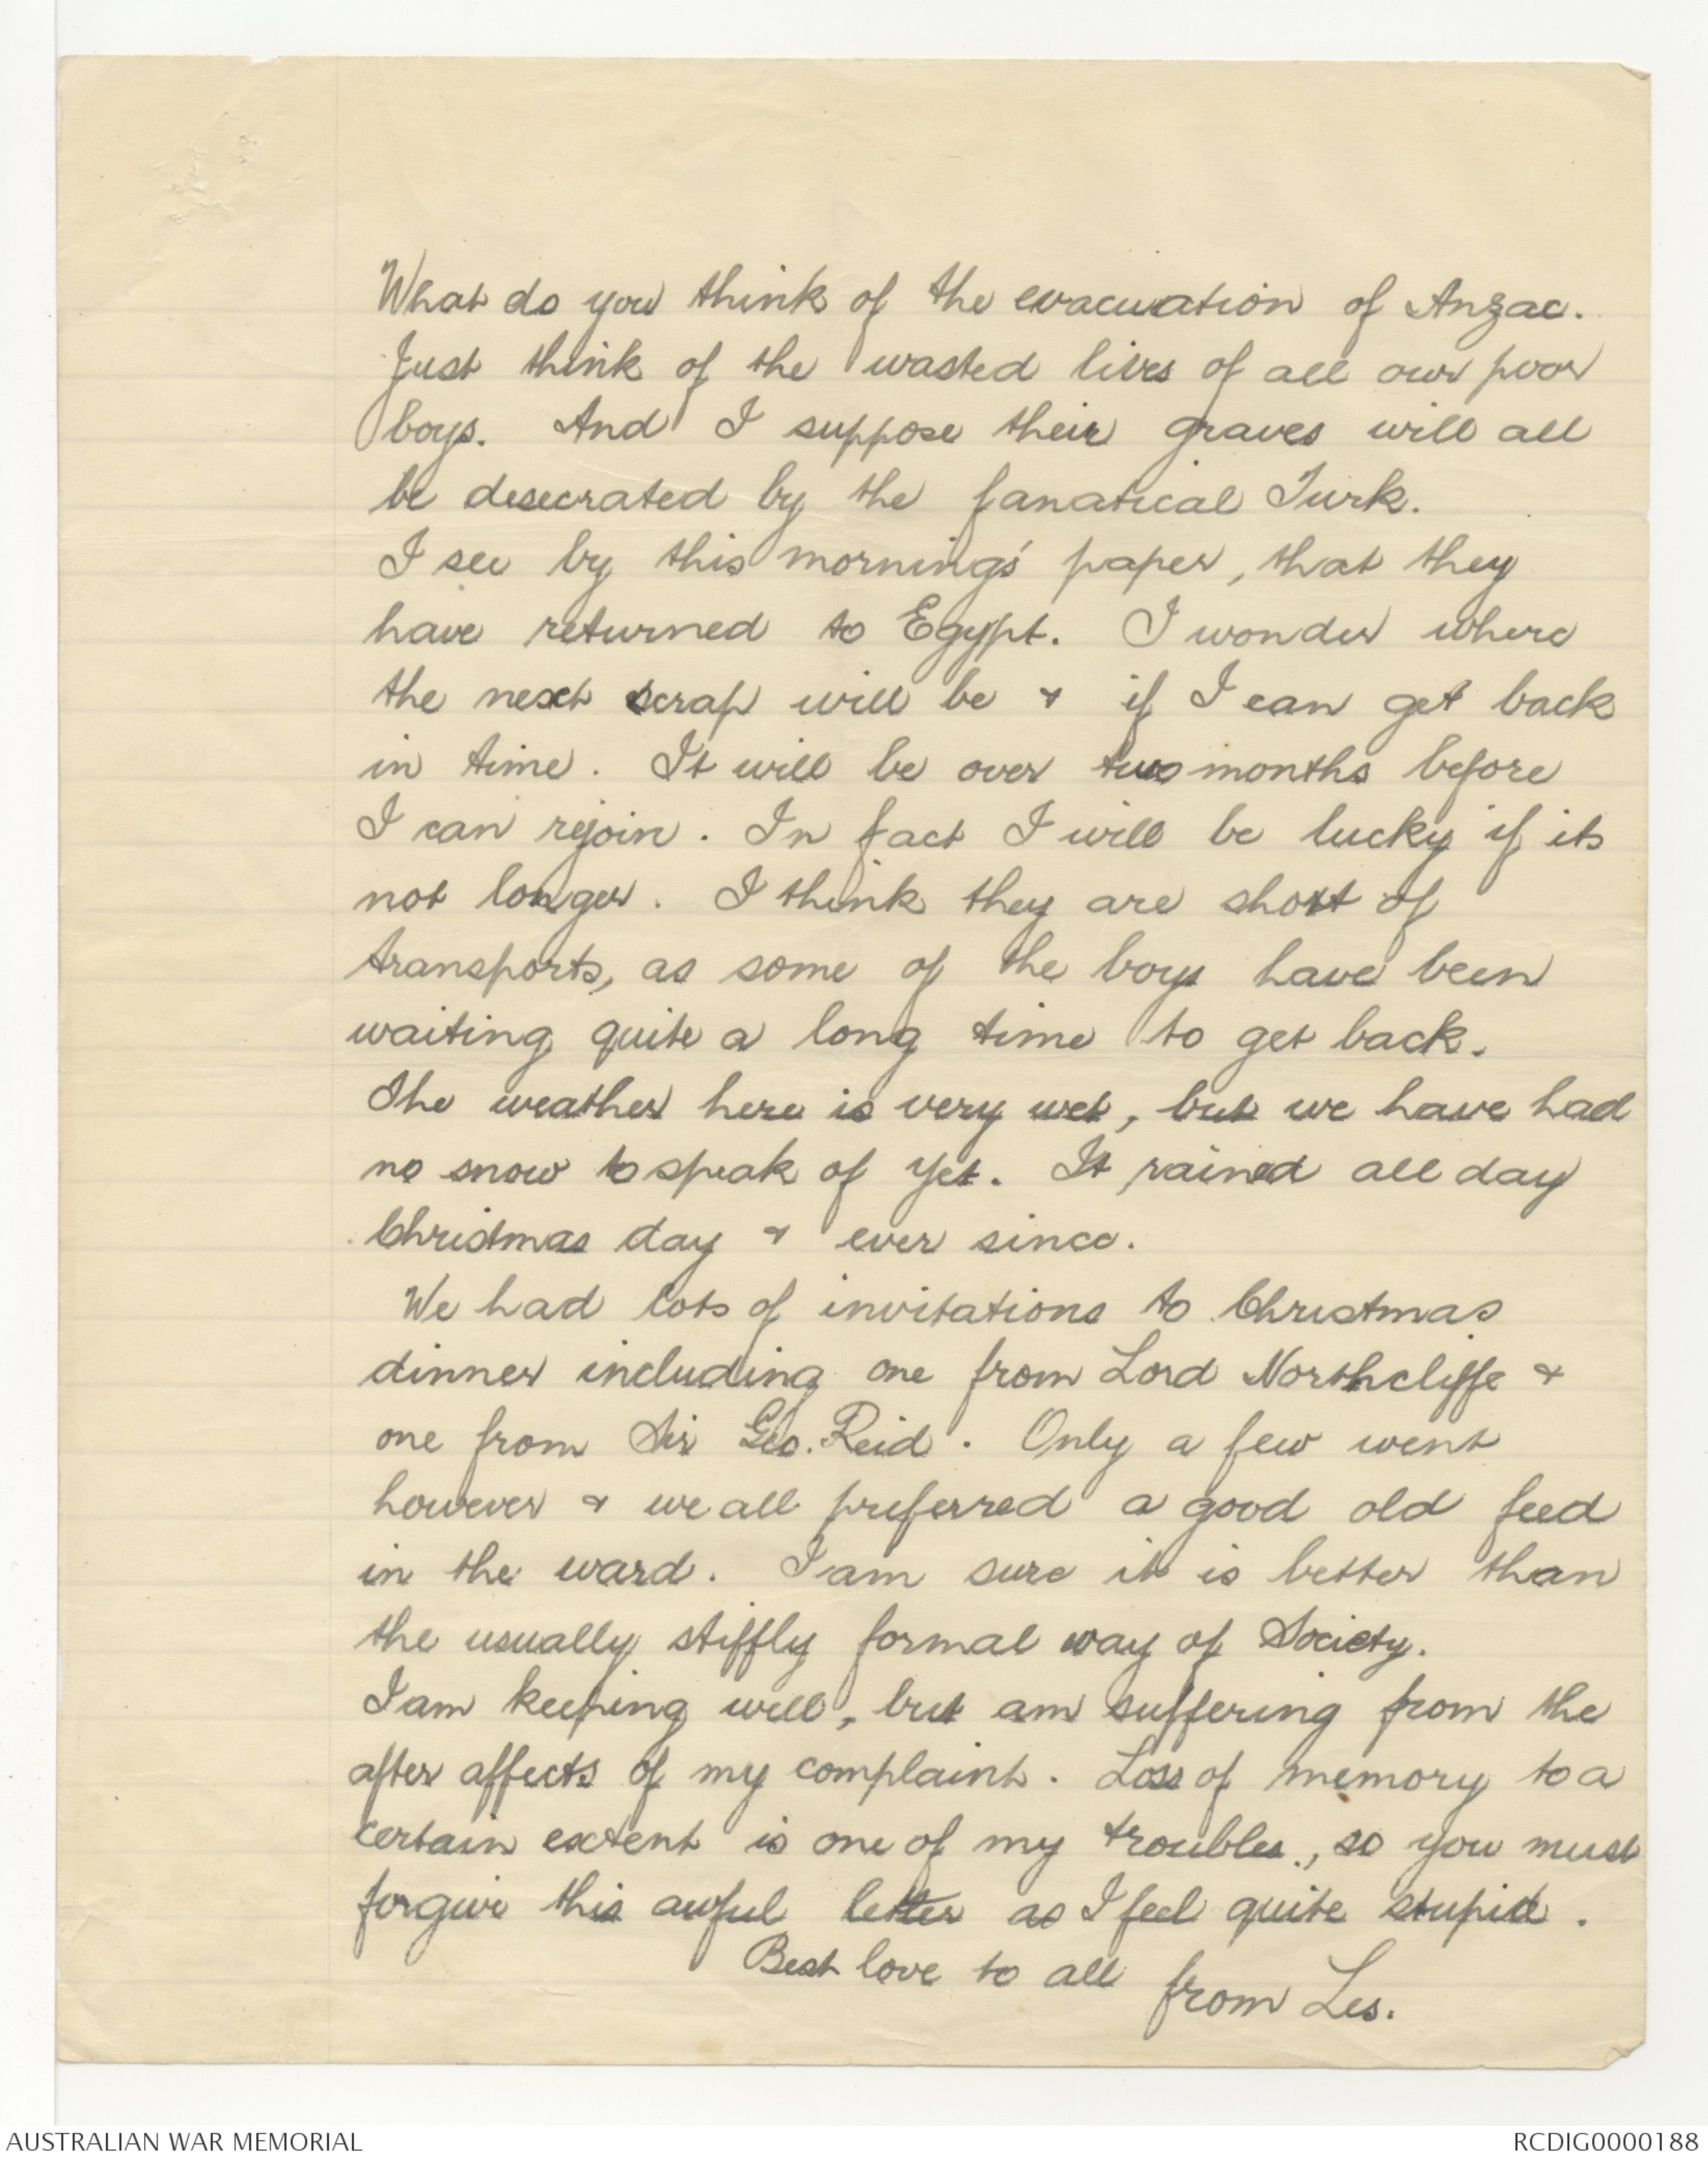 What do you think of the evacuation of Anzac.
Just think of the wasted lives of all our poor
boys. And I suppose their graves will all
be desecrated by the fanatical Turk.
I see by this morning's paper, that they
have returned to Egypt. I wonder where
the next scrap will be & if I can get back
in time. It will be over two months before
I can rejoin. In fact I will be lucky if its
not longer. I think they are short of
transports, as some of the boys have been
waiting quite a long time to get back.
The weather here is very wet, but we have had
no snow to speak of yet. It rained all day
Christmas day & ever since.
We had lots of invitations to Christmas
dinner including one from Lord Northcliffe &
one from Sir Geo. Reid. Only a few went
however & we all preferred a good old feed
in the ward. I am sure it is better than
the usually stiffly formal way of Society.
I am keeping well, but am suffering from the
after affects of my complaint. Loss of memory to a
certain extent is one of my troubles, so you must
forgive this awful letter as I feel quite stupid.
Best love to all from Les.
AUSTRALIAN WAR MEMORIAL
RCDIG0000188